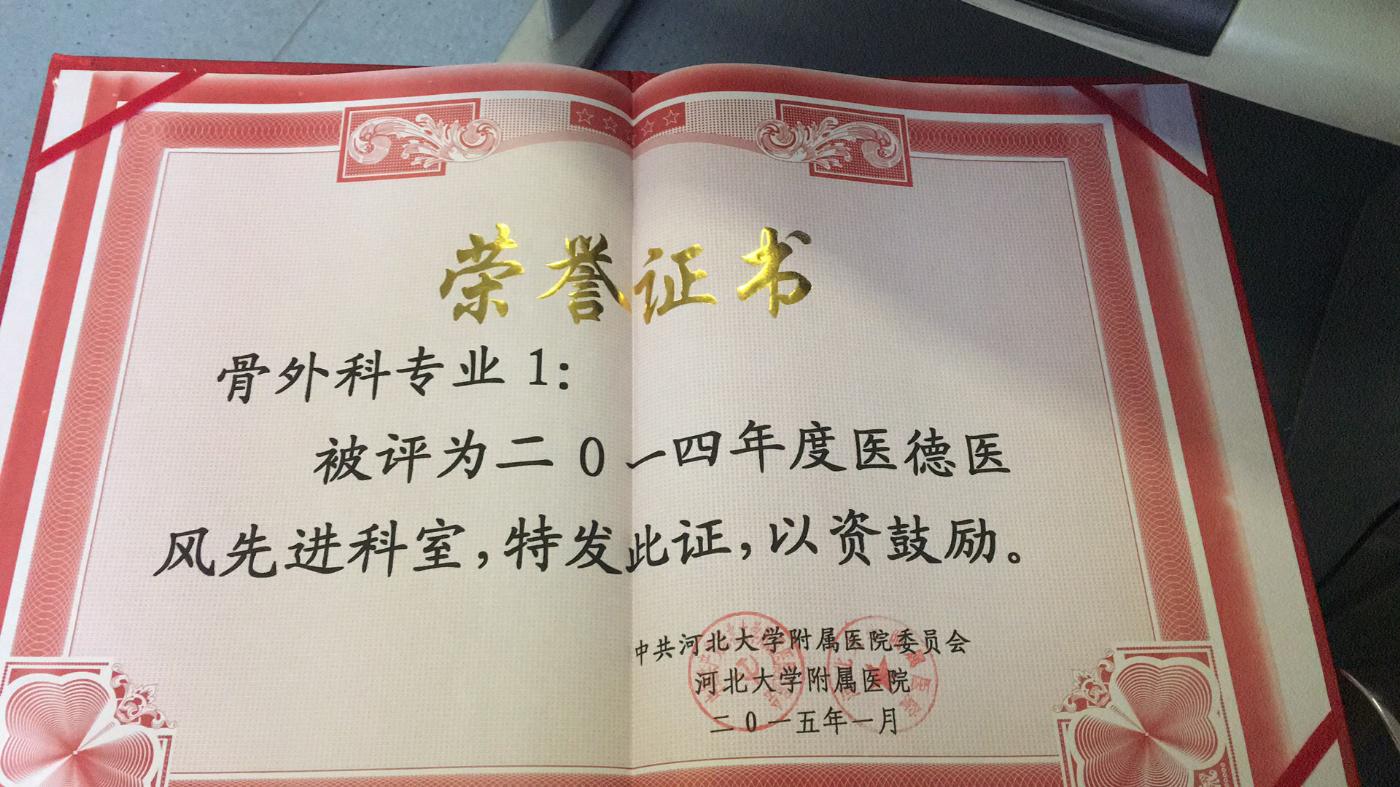 荣誉证书
骨外科专业1:
被评为二0一四年度医德医
风先进科室,特发此证,以资鼓励。
中共河北大学附属医院委员会
河北大学附属医院
二0一五年一月